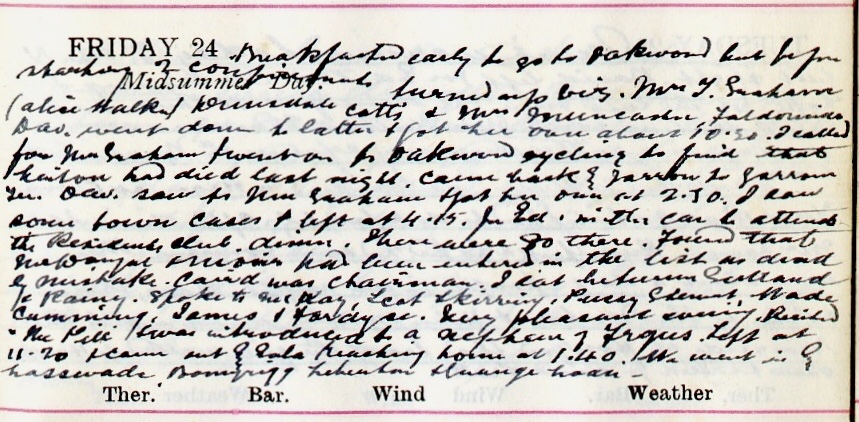 FRIDAY 24 Breakfasted early to go to Oakwood but before
Midsummer Day.
turned up viz. Mrs T. Graham
(Alice Walk) cotts & Mrs Muncaster,
Dav. went down to latter & got her over about 10.30. I called
for Mrs Graham & went on to Oakwood cycling to find that
had died last night. Came back by Yarrow to Yarrow
Dav. saw to Mrs Graham & got her over at 2.30. I saw
some town cases & left at 4.15. for Ed. in the car to attend
the Residents club dinner. There were 30 there. Found that
had been entered in the list as dead
by mistake. Caird was chairman. I sat between
& Rainy. Spoke to McKay, Scot Skirving, Pussy Stewart, Wade
Cumming, James & Fordyce. Very pleasant evening. Recited
"The Pill" & was introduced to a nephew of Fergus. Left at
11.20 & came out by Gala reaching home at 1.40. We went in by
Lasswade, Bonnyrigg
Ther. Bar. Wind Weather